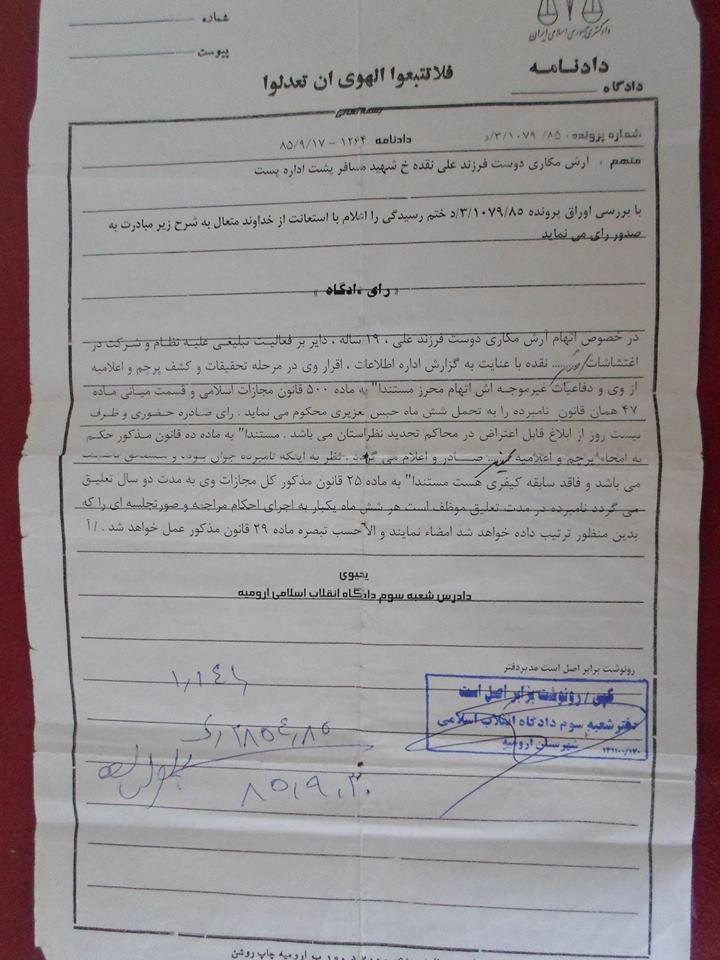 شماره
پیوست
دادگستری جمهوری اسلامی ایران
دادنامه
دادگاه
فلاتتبعوا الهوی ان تعدلوا
بسمه تعالی
شماره پرونده: ۸۵/ ۳/۱۰۷۹/د دادنامه ۱۲۶۴ - ۸۵/۹/۱۷
متهم: آرش مکاری دوست فرزند علی نقده خ شهید مسافر پشت اداره پست
با بررسی اوراق پرونده ۳/۱۰۷۹/۸۵/د ختم رسیدگی را اعلام با استعانت از خداوند متعال به شرح زیر مبادرت به
صدور رای می نماید
« رای دادگاه »
در خصوص اتهام آرش مکاری دوست فرزند علی ، ۱۹ ساله ، دایر بر فعالیت تبلیغی علیه نظام و شرکت در
اغتشاشات نقده با عنایت به گزارش اداره اطلاعات ، اقرار وی در مرحله تحقیقات و کشف پرچم و اعلامیه
از وی و دفاعیات غیرموجه اش اتهام محرز مستندا" به ماده ۵۰۰ قانون مجازات اسلامی و قسمت میانی ماده
۴۷ همان قانون نامبرده را به تحمل شش ماه حبس تعزیری محکوم می نماید . رای صادره حضوری و ظرف
بیست روز از ابلاغ قابل اعتراض در محاکم تجدید نظراستان می باشد . مستندا" به ماده ده قانون مذکور حکم
به امحاء پرچم و اعلامیه صادر و اعلام می گردد . نظر به اینکه نامبرده جوان بوده و
می باشد و فاقد سابقه کیفری هست مستندا" به ماده ۲۵ قانون مذکور کل مجازات وی به مدت دو سال تعلیق
می گردد نامبرده در مدت تعلیق موظف است هر شش ماه یکبار به اجرای احکام مراجعه و صورتجلسه ای را که
بدین منظور ترتیب داده خواهد شد امضاء نمایند و الا حسب تبصره ماده ۲۹ قانون مذکور عمل خواهد شد . /آ
یحیوی
دادرس شعبه سوم دادگاه انقلاب اسلامی ارومیه
رونوشت برابر اصل است مدیردفتر
کپی / رونوشت برابر اصل است
دفتر شعبه سوم دادگاه انقلاب اسلامی
شهرستان ارومیه
۸۵،۹،۳۰
ارومیه چاپ روشن